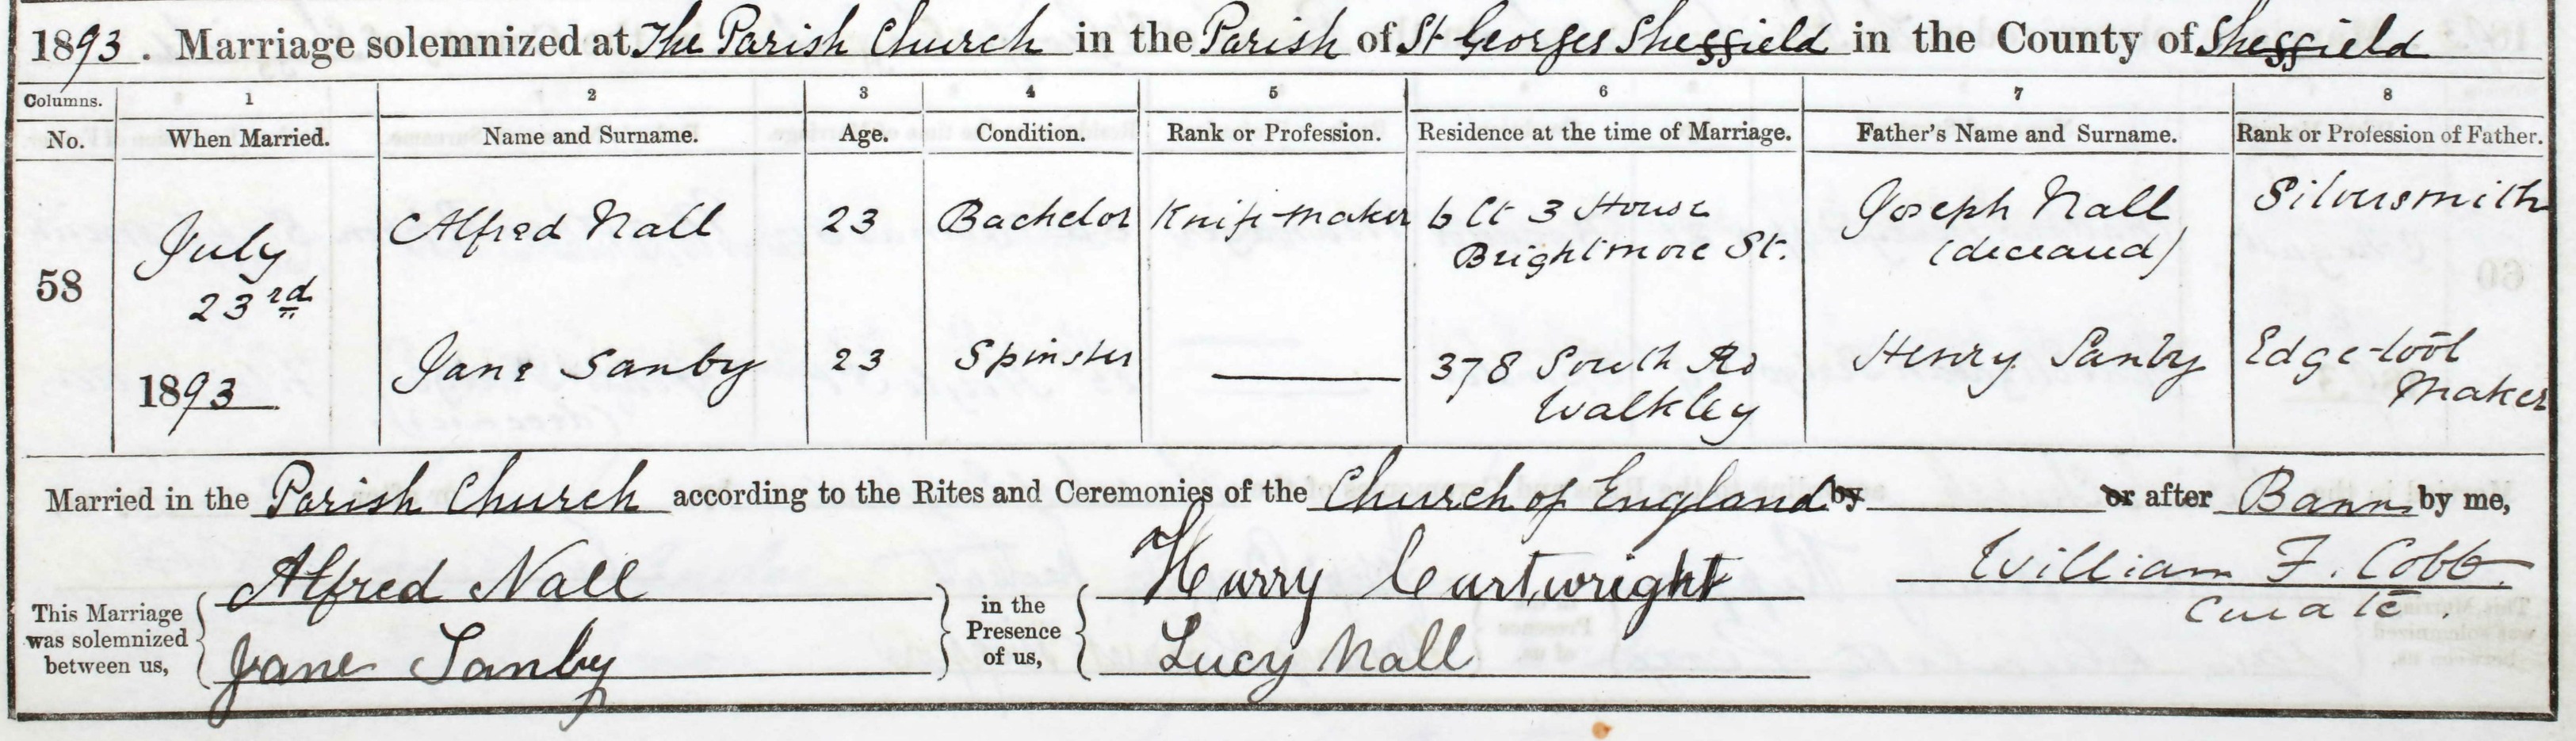 1893. Marriage solemnized at The Parish Church in the Parish of St Georges Sheffield in the County of Sheffield
Columns. 1 2 3 4 5 6 7 8
No. When Married. Name and Surname. Age. Condition. Rank or Profession. Residence at the time of Marriage. Father's Name and Surname. Rank or Profession of Father.
58
July
23rd
1893
Alfred Nall
23
Bachelor
Knife-maker
6 Ct 3 House
Brightmore St.
Joseph Nall
(deceased)
Silversmith
Jane Sanby
23
Spinster
378 South Rd
Walkley
Henry Sanby
Edge-tool
Maker
Married in the Parish Church according to the Rites and Ceremonies of the Church of England by or after Banns by me,
This Marriage
was solemnized
between us,
Alfred Nall
Jane Sanby
in the
Presence
of us,
Harry Curtwright
Lucy Nall
William F. Cobb.
Curate.